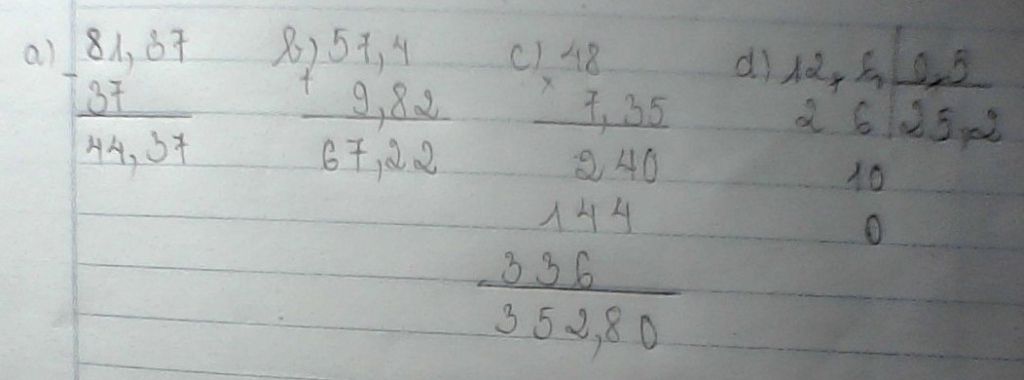 a) 81,37 b) 57,4 c) 48 d) 12,6, 0,5
- + ×
37 9,82 7,35 2 6 25,2
44,37 67,22 240 10
144 0
336
352,80